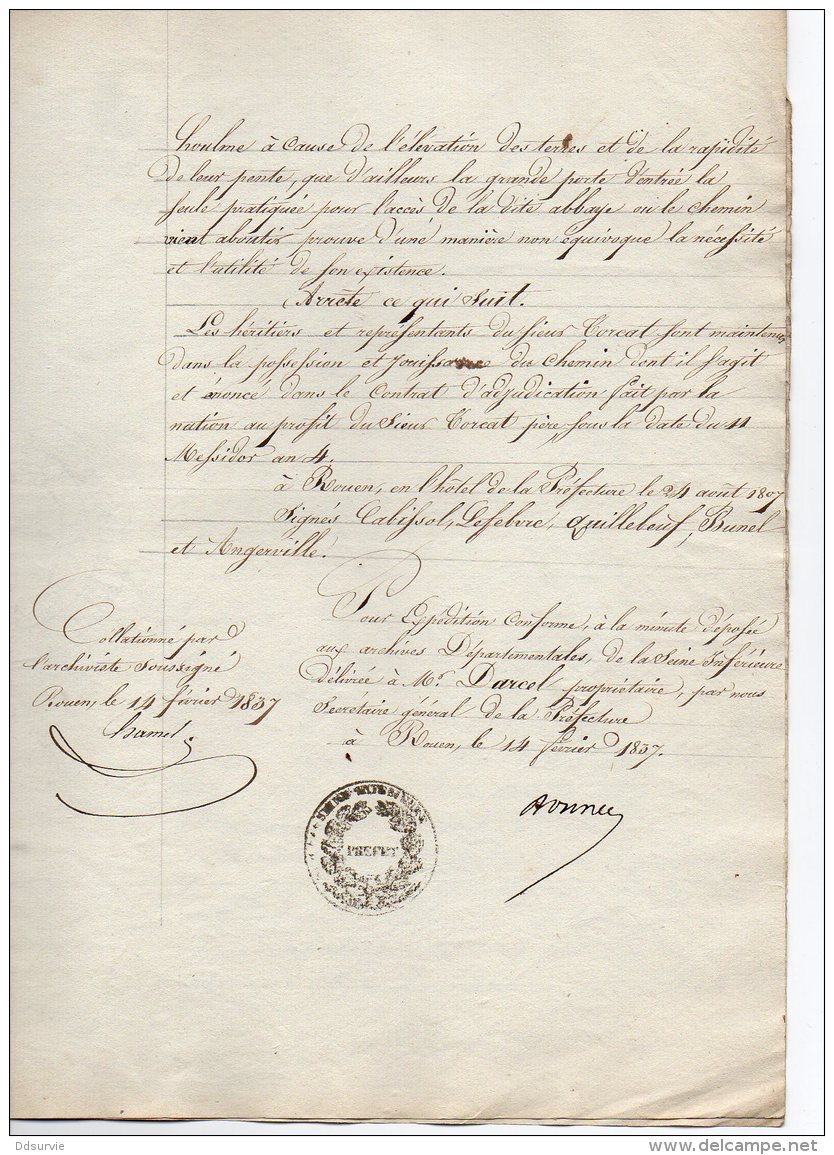 houlme à cause de l'élévation des terres et de la rapidité
de leur pente, que d'ailleurs la grande porte d'entrée la
seule pratiquée pour l'accès de la dite abbaye où le chemin
vient aboutir prouve d'une manière non équivoque la nécessité
et l'utilité de son existence.
Arrête ce qui suit.
Les héritiers et représentants du sieur Torcat sont maintenus
dans la possession et jouissance du chemin dont il s'agit
et énoncé dans le contrat d'adjudication fait par la
nation au profit du Sieur Torcat père sous la date du 11
Messidor an 4.
à Rouen, en l'hôtel de la Préfecture le 24 août 1807
Signés Cabissol, Lefebvre, Quillebeuf, Brunel
et Angerville.
Collationné par
l'archiviste soussigné
Rouen, le 14 février 1837
Pour Expédition conforme, à la minute déposée
aux archives Départementales, de la Seine Inférieure
délivrée à Mr. Darcel propriétaire, par nous
Secrétaire général de la Préfecture
à Rouen, le 14 février 1837.
PREFET
Ddsurvie
www.delcampe.net